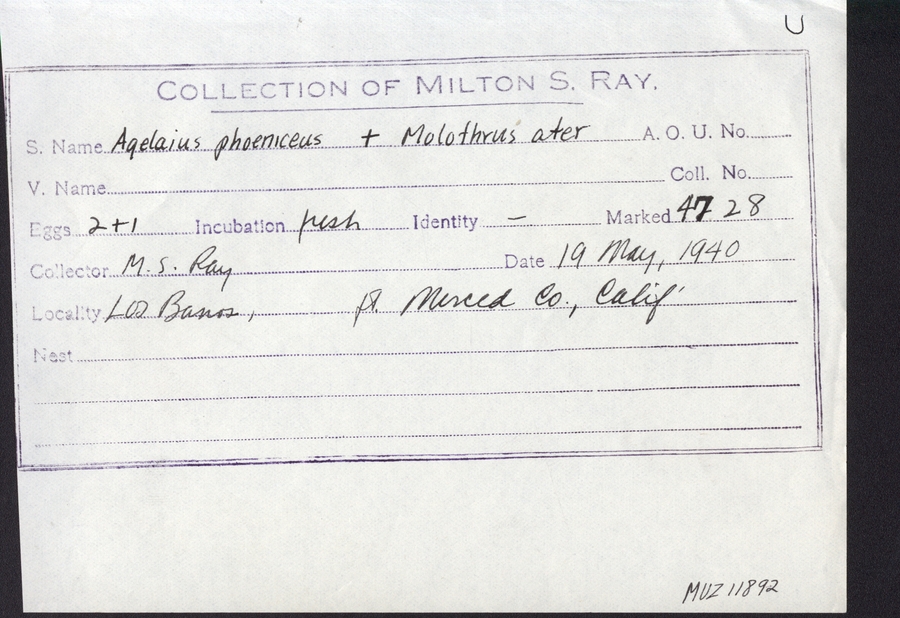 U
COLLECTION OF MILTON S. RAY.
S. Name Agelaius phoeniceus + Molothrus ater A. O. U. No.
V. Name Coll. No.
Eggs 2+1 Incubation fresh Identity – Marked 47 28
Collector M. S. Ray Date 19 May, 1940
Locality Los Banos, Merced Co., Calif.
Nest
MVZ 11892